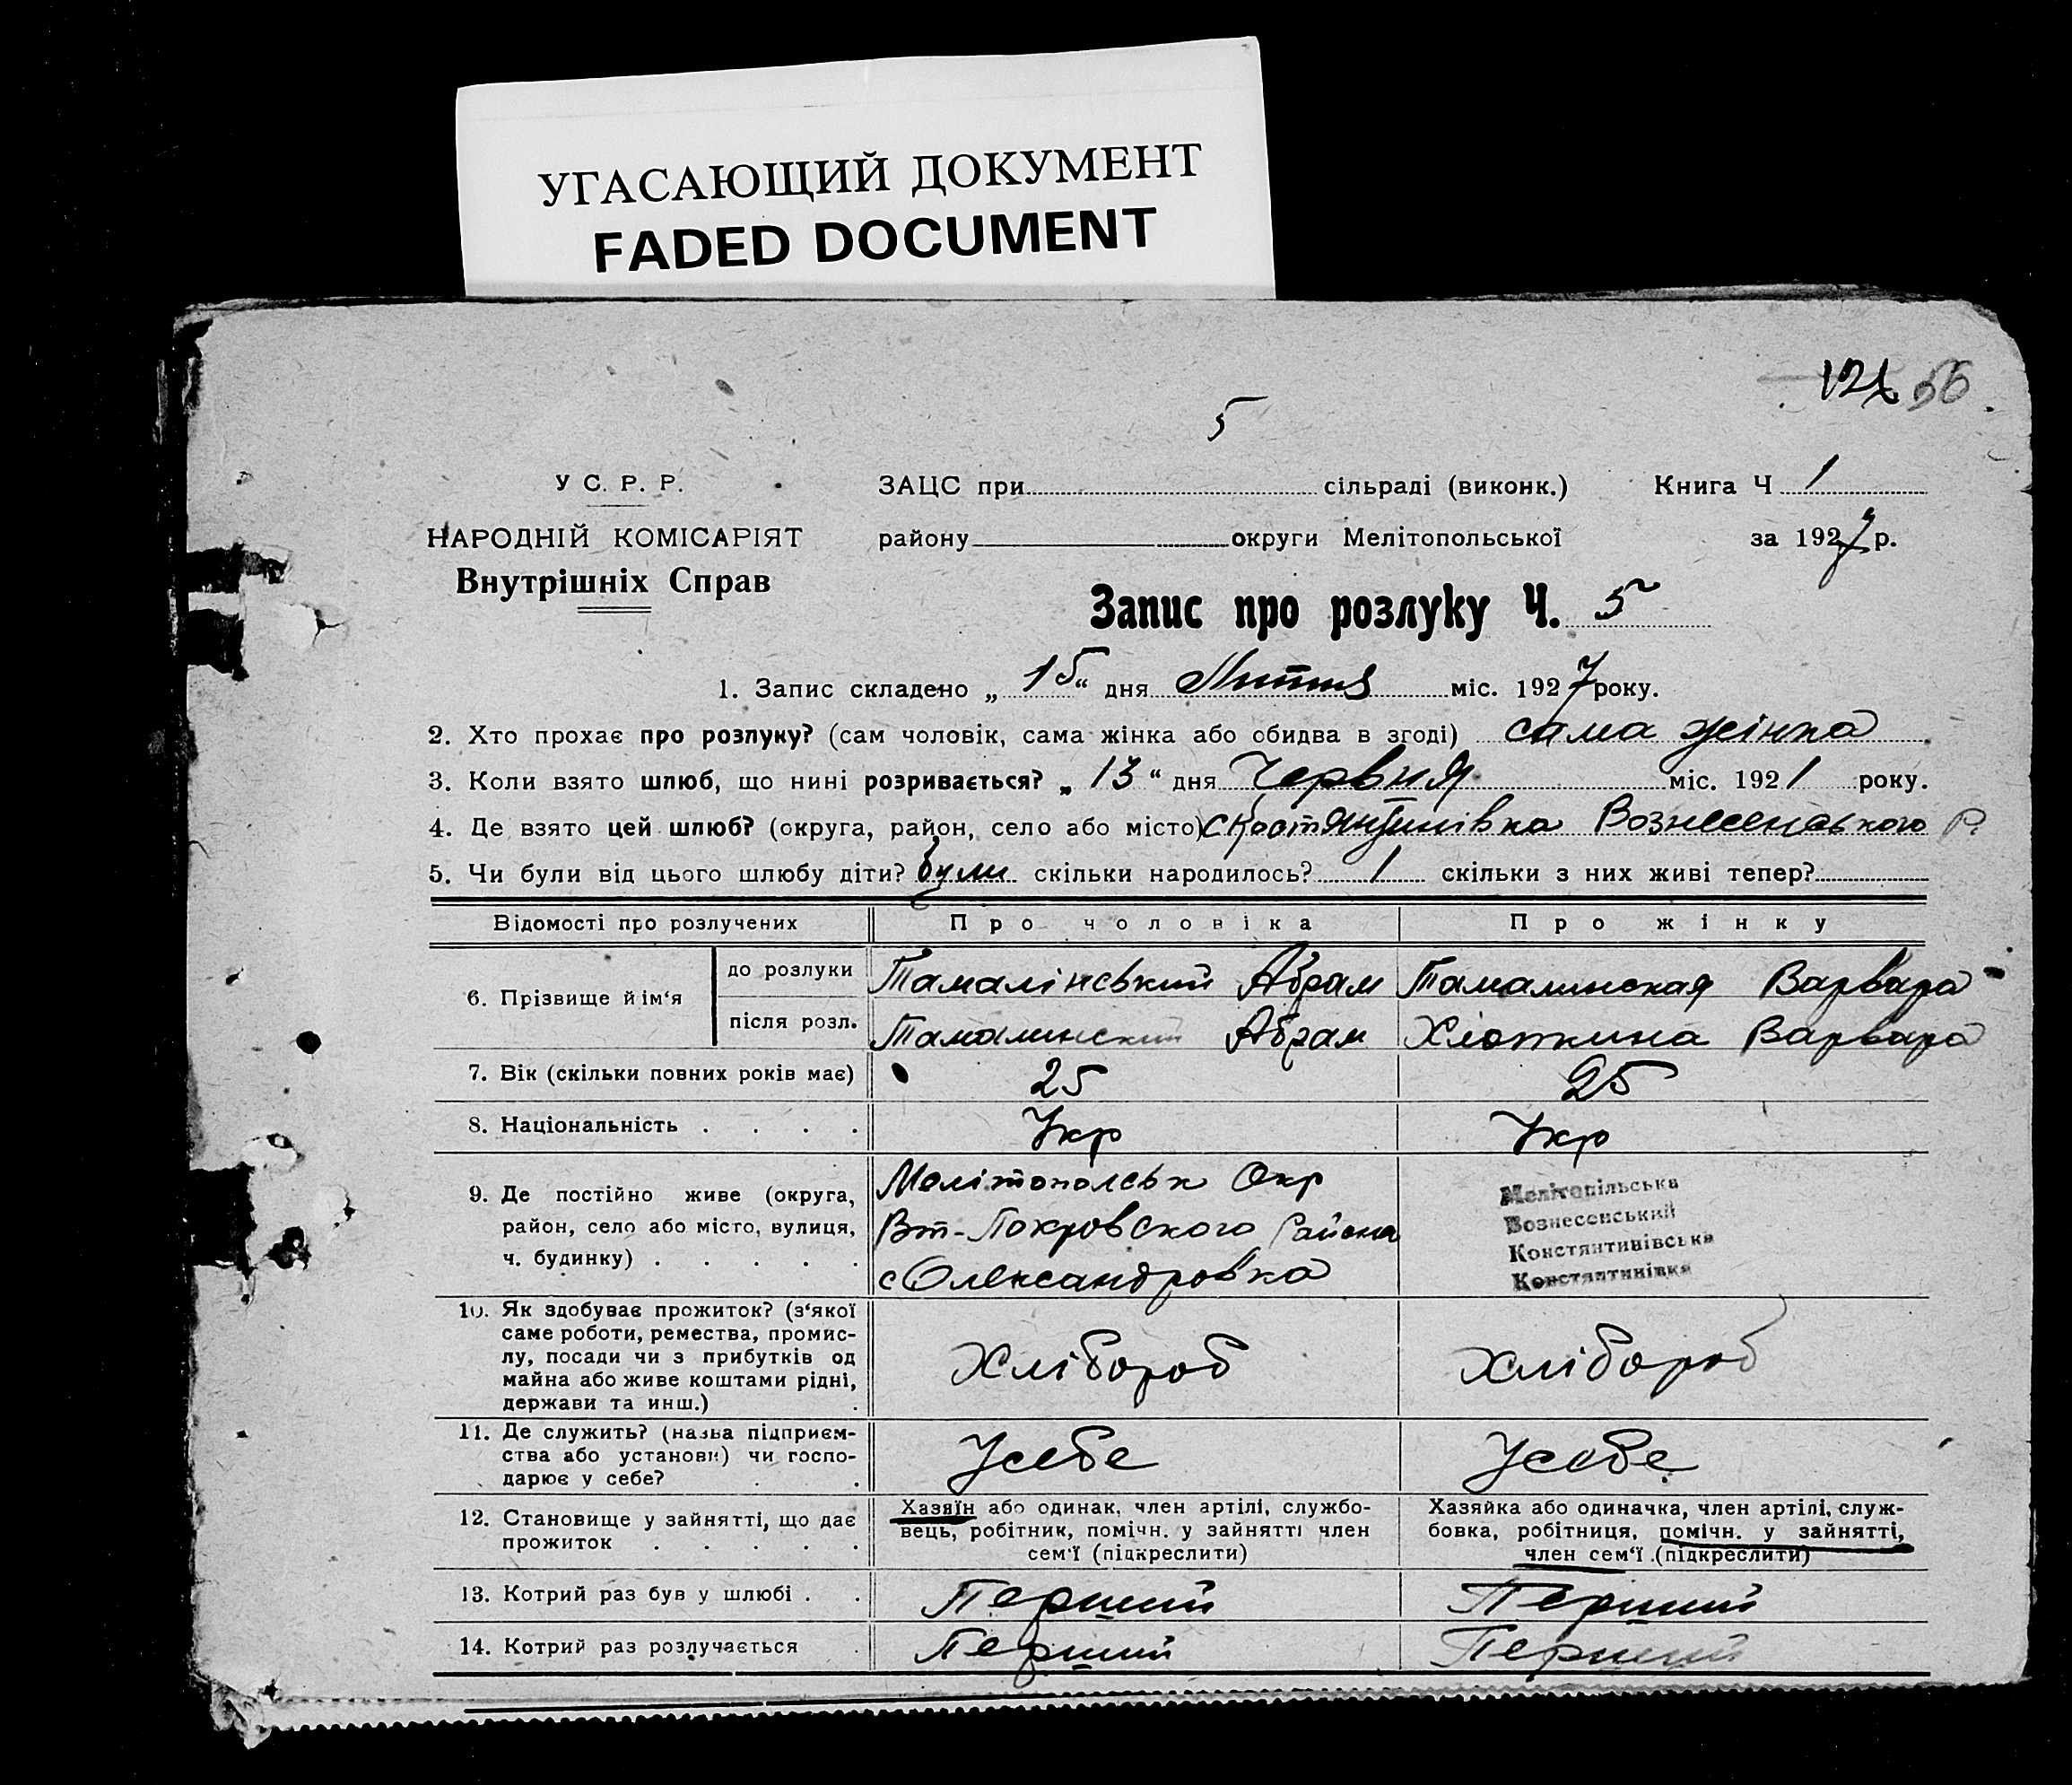 УГАСАЮЩИЙ ДОКУМЕНТ
FADED DOCUMENT
5
У С. Р. Р.
НАРОДНІЙ КОМІСАРІЯТ
Внутрішніх Справ
ЗАЦС при сільраді (виконк.) Книга Ч 1
району округи Мелітопольської за 1927 р.
Запис про розлуку Ч. 5
1. Запис складено „ 15 “ дня міс. 1927 року.
2. Хто прохає про розлуку? (сам чоловік, сама жінка або обидва в згоді) сама жінка
3. Коли взято шлюб, що нині розривається? „ 13 “ дня Червня міс. 1921 року.
4. Де взято цей шлюб? (округа, район, село або місто) Вознесенського Р.
5. Чи були від цього шлюбу діти? були скільки народилось? 1 скільки з них живі тепер?
Відомості про розлучених Про чоловіка Про жінку
6. Прізвище й ім‘я
до розлуки Тамалінський Абрам Тамалинская Варвара
після розл. Тамалинский Абрам Варвара
7. Вік (скільки повних років має) 25 25
8. Національність . . . . Укр Укр
9. Де постійно живе (округа,
район, село або місто, вулиця,
ч. будинку) . . . . .
Мелітопольськ Окр
Вт-Покровского Района
с Олександровка
Мелітопільська
Вознесенський
Константинівська
Константинівка
10. Як здобуває прожиток? (з‘якої
саме роботи, ремества, промис-
лу, посади чи з прибутків од
майна або живе коштами рідні,
держави та инш.) .
Хлібороб Хлібороб
11. Де служить? (назва підприєм-
ства або установи) чи госпо-
дарює у себе? . .
Усебе Усебе
12. Становище у зайнятті, що дає
прожиток . . . . .
Хазяїн або одинак, член артілі, службо-
вець, робітник, помічн. у зайнятті член
сем‘ї (підкреслити)
Хазяйка або одиначка, член артілі, служ-
бовка, робітниця, помічн. у зайнятті,
член сем‘ї (підкреслити)
13. Котрий раз був у шлюбі . . Перший Перший
14. Котрий раз розлучається . Перший Перший